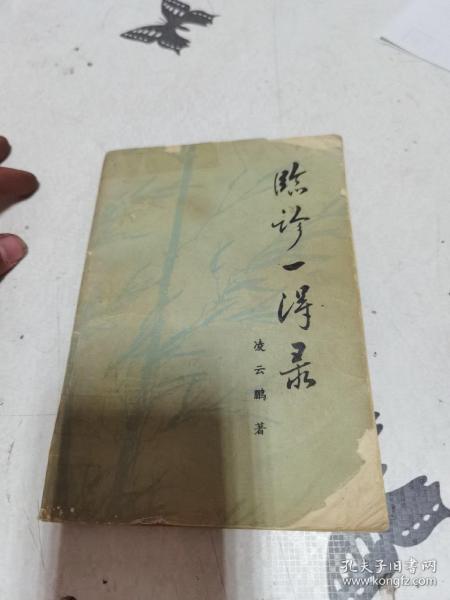 临诊一得录
凌云鹏 著
孔夫子旧书网
www.kongfz.com